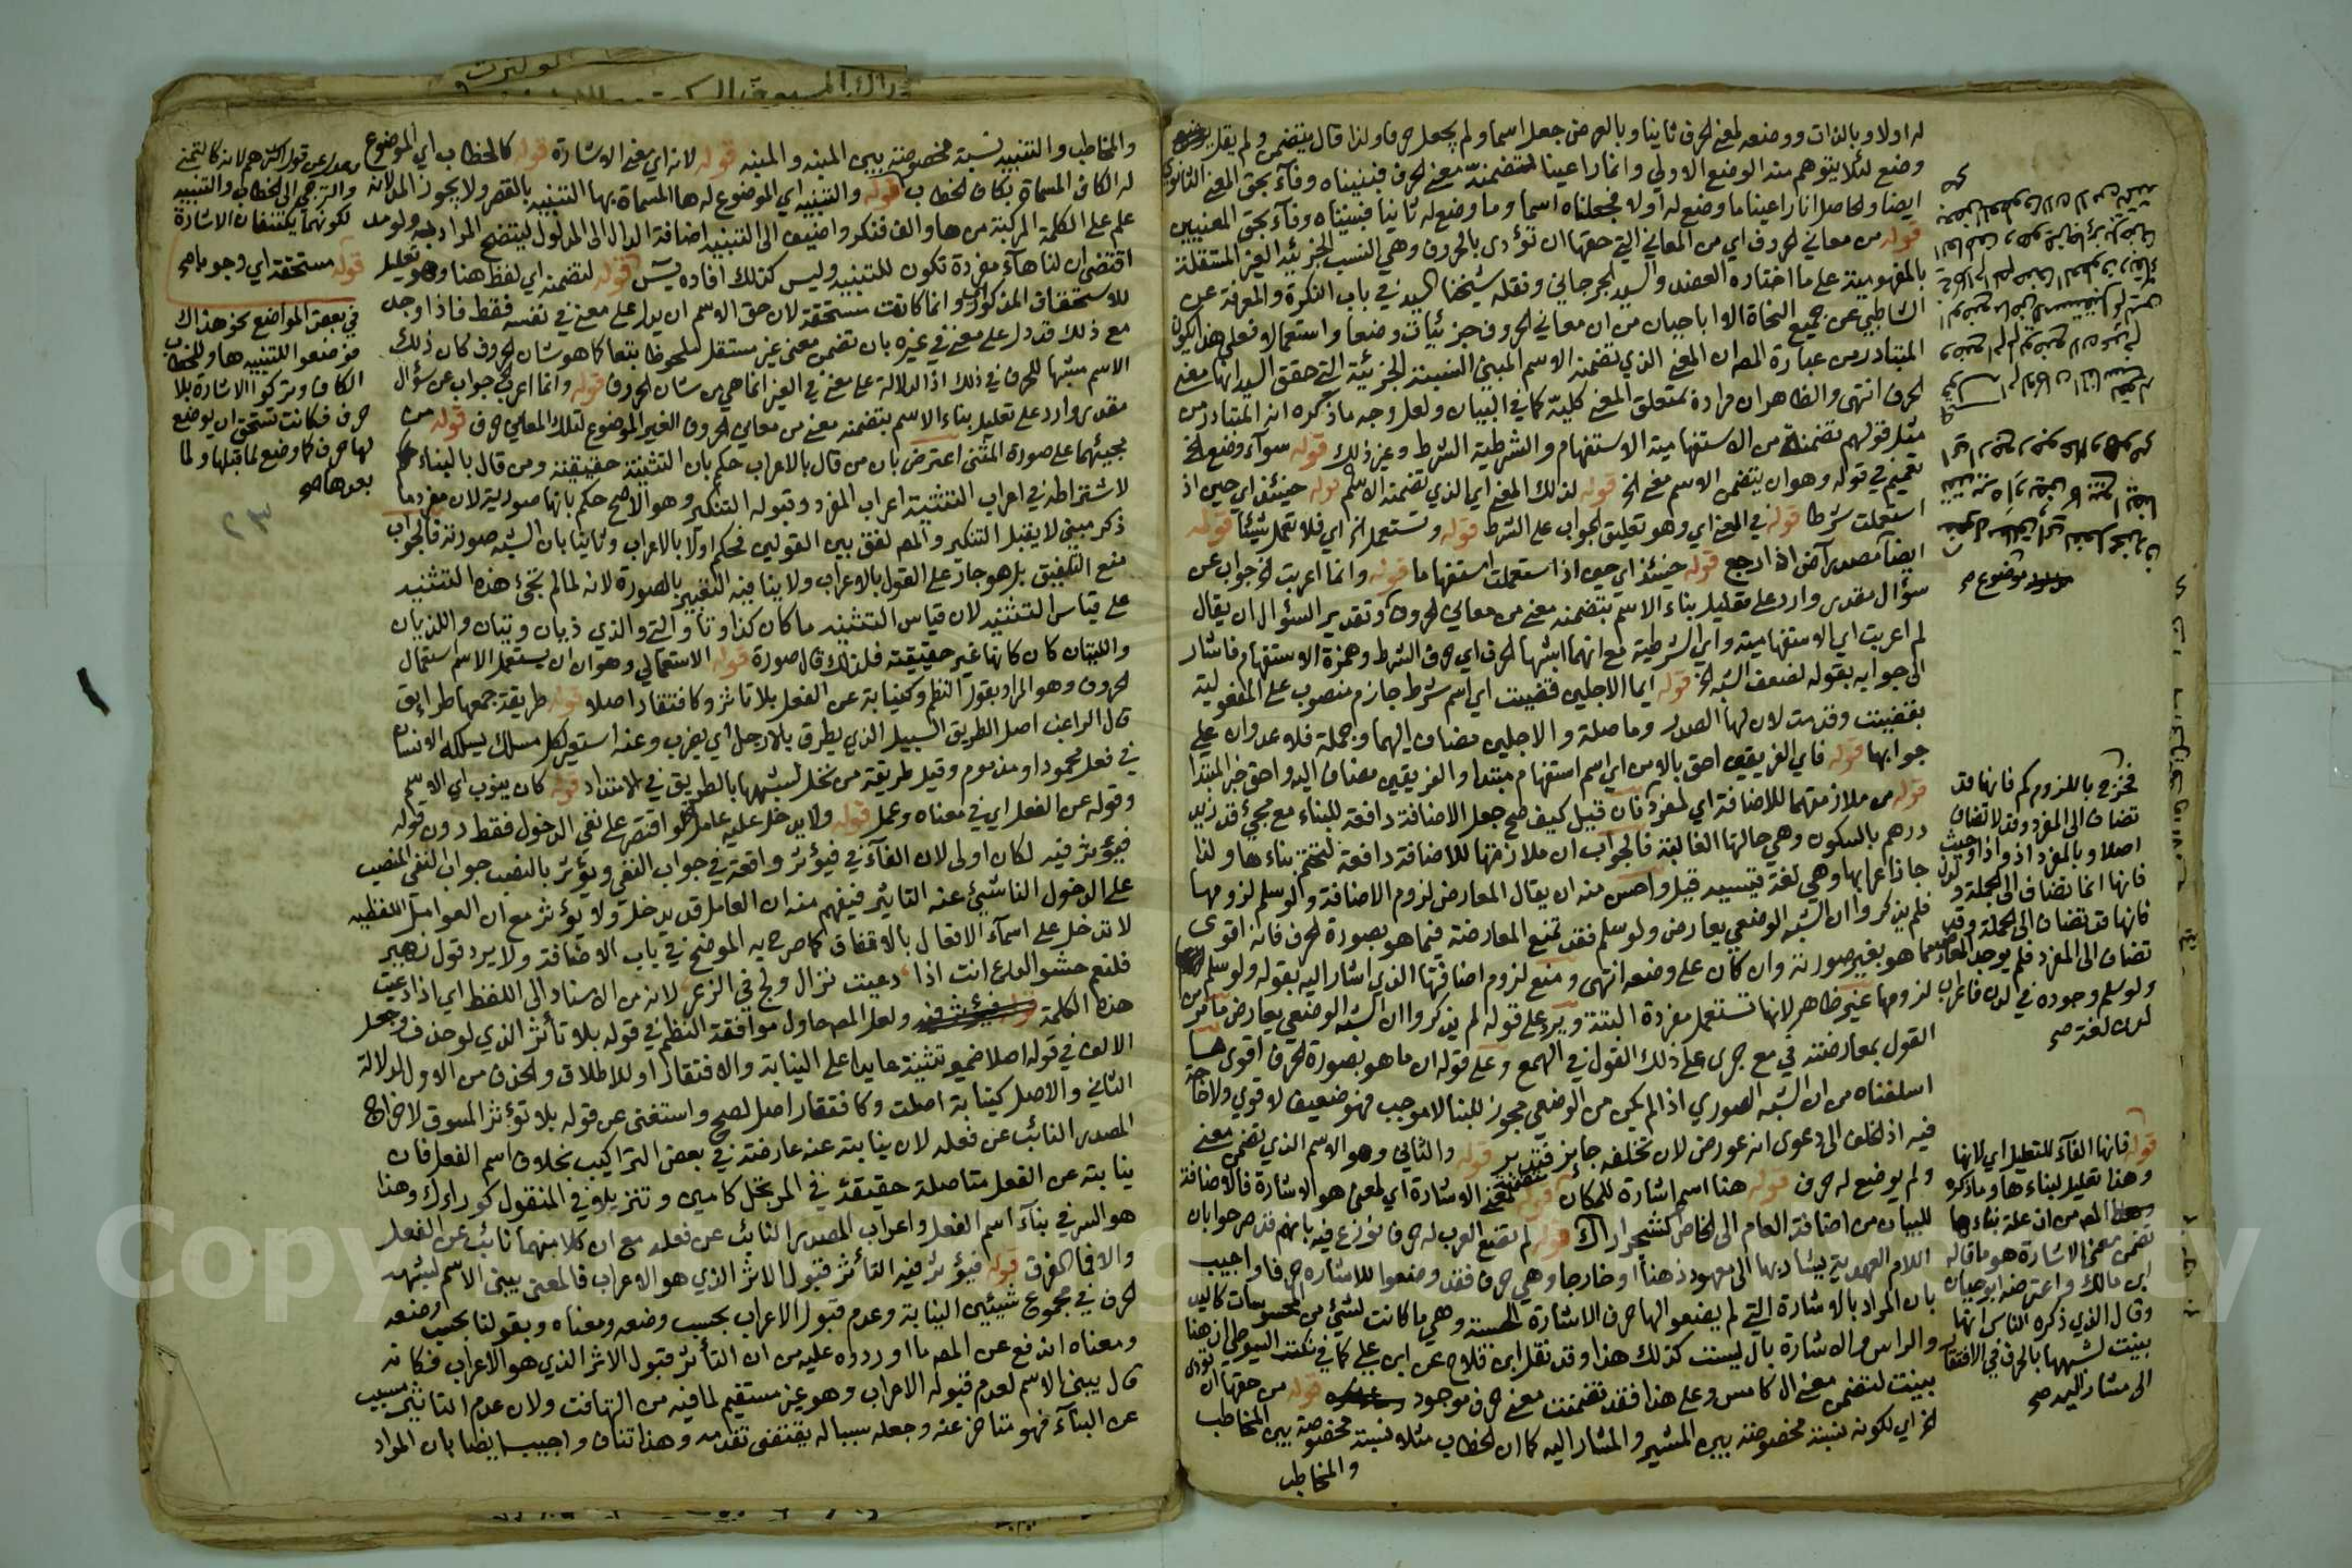 له اولا وبالذات ووضعه لمعنى الحرف ثانيا وبالعرض جعل اسما ولم يجعل حرفا ولذا قال يتضمن ولم يقل
وضع لئلا يتوهم منه الوضع الاولي وانما راعينا لتضمنه معنى الحرف فبنيناه وفآء بحق المعنى الثانوي
ايضا والحاصل انا راعينا ما وضع له اولا فجعلناه اسما وما وضع له ثانيا فبنيناه وفآء بحق المعنيين
قوله من معاني الحروف اي من المعاني التي حقها ان تؤدى بالحروف وهي النسب الجزئية الغير المستقلة
بالمفهومية على ما اختاره العضد والسيد الجرجاني ونقله شيخنا السيد في باب النكرة والمعرفة عن
الشاطبي عن جميع النحاة الا اباحيان من ان معاني الحروف جزئيات وضعا واستعمالا فعلى هذا يكون
المتبادر من عبارة المصـ ان المعنى الذي تضمنه الاسم المبني النسبة الجزئية التي حقق السيد انها معنى
الحرف انتهى والظاهر ان مراده بمتعلق المعنى كليه كما في البيان ولعل وجه ما ذكره انه المتبادر من
مثل قولهم تضمنا من الاستفهامية الاستفهام والشرطية الشرط وغير ذلك قوله سوآء وضع الخ
تعميم في قوله وهو ان يتضمن الاسم معنى الخ قوله لذلك المعنى اي الذي تضمنه الاسم قوله حينئذ اي حين اذ
استعملت شرطا قوله في المعنى اي وهو تعليق الجواب على الشرط قوله وتستعمل الخ اي فلا تعمل شيئا قوله
ايضا مصدر آض اذا رجع قوله حينئذ اي حين اذ استعملت استفهاما قوله وانما اعربت الخ جواب عن
سؤال مقدر وارد على تعليل بناء الاسم بتضمنه معنى من معاني الحروف وتقدير السؤال ان يقال
لم اعربت اي الاستفهامية واي الشرطية مع انهما اشبها الحرف اي حرف الشرط وهمزة الاستفهام فاشار
الى جوابه بقوله لضعف الشبه الخ قوله ايما الاجلين قضيت اي اسم شرط جازم منصوب على المفعولية
بقضيت وقدمت لان لها الصدر وما صلة والاجلين مضاف اليها وجملة فلا عدوان علي
جوابها قوله فاي الفريقين احق بالامن اي اسم استفهام مبتدا والفريقين مضاف اليه واحق خبر المبتدا
قوله من ملازمتهما للاضافة اي لمفرد فان قيل كيف صح جعل الاضافة دافعة للبناء مع مجيء قد زيد
درهم بالسكون وهي حالتها الغالبة فالجواب ان ملازمتها للاضافة دافعة لتحتم بناءها ولذا
جاز اعرابها وهي لغة قيسيه قيل واحسن منه ان يقال المعارض لزوم الاضافة ولو سلم لزومها
فلم يذكروا ان الشبه الوضعي يعارض ولو سلم فقد تمنع المعارضة فيما هو بصورة الحرف فانه اقوى
مما هو بغير صورته وان كان على وضعه انتهى ومنع لزوم اضافتها الذي اشار اليه بقوله ولو سلم
لزومها غير ظاهر لانها تستعمل مفردة البتة ويرد على قوله لم يذكروا ان الشبه الوضعي يعارض ما مر من
القول بمعارضته في مع جرى على ذلك القول في الهمع وعلى قوله ان ما هو بصورة الحرف اقوى
اسلفناه من ان الشبه الصوري اذا لم يكن من الوضعي مجوز للبنا لا موجب فهو ضعيف لا قوي ولا حاجة
فيه اذ الخلف الى دعوى انه عورض لان تخلفه جايز فتدبر قوله والثاني وهو الاسم الذي تضمن معنى
ولم يوضع له حرف قوله هنا اسم اشارة للمكان قوله لمعنى الاشارة اي لمعنى هو الاشارة فالاضافة
للبيان من اضافة العام الى الخاص كشجر اراك قوله لم تضع العرب له حرفا نوزع فيه بانهم قد صرحوا بان
اللام العهدية يشار بها الى معهود ذهنا او خارجا وهي حرف فقد وضعوا للاشاره حرفا واجيب
بان المراد بالاشارة التي لم يضعوا لها حرف الاشارة الحسية وهي ما كانت لشيء من المحسوسات كاليد
والراس والاشارة بال ليست كذلك هذا وقد نقل ابن فلاح عن ابي علي كما في نكت السيوطي ان هنا
بنيت لتضمن معنى ال كامس وعلى هذا فقد تضمنت معنى حرف موجود قوله من حقها ان تؤدى
الخ اي لكونه نسبة مخصوصة بين المشير والمشار اليه كما ان الخطاب مثلا نسبة مخصوصة بين المخاطب
والمخاطب
فخرج باللزوم كم فانها قد
تضاف الى المفرد وقد لا تضاف
اصلا وبالمفرد اذ واذا وحيث
فانها انما تضاف الى الجملة ولدن
فانها قد تضاف الى الجملة وقد
تضاف الى المفرد فلم يوجد المعارض
ولو سلم وجوده في لدن فاعراب
لدن لغة صح
قوله فانها الفآء للتعليل اي لانها
وهذا تعليل لبناءها وما ذكره
المصـ من ان علة بناءها
تضمن معنى الاشارة هو ما قاله
ابن مالك واعترضه ابوحيان
وقال الذي ذكره الناس انها
بنيت لشبهها بالحرف في الافتقار
الى مشار اليه صح
والمخاطب والتنبيه نسبة مخصوصة بين المنبه والمنبه قوله لانه اي معنى الاشارة قوله كالخطاب اي الموضوع
له الكاف المسماة بكاف الخطاب قوله والتنبيه اي الموضوع له ها المسماة بها التنبيه بالقصر ولا يجوز المد لانه
علم على الكلمة المركبة من ها والف فنكر واضيف الى التنبيه اضافة الدال الى المدلول ليتضح المراد به ولو مد
اقتضى ان لنا هآء مفردة تكون للتنبيه وليس كذلك افاده يس قوله لتضمنه اي لفظ هنا وهو تعليل
للاستحقاق المذكور وانما كانت مستحقة لان حق الاسم ان يدل على معنى في نفسه فقط فاذا وجد
مع ذلك قد دل على معنى في غيره بان تضمن معنى غير مستقل ملحوظا تبعا كما هو شان الحروف كان ذلك
الاسم مشبها للحرف في ذلك اذ الدلالة على معنى في الغير انما هي من شان الحروف قوله وانما اعرب الخ جواب عن سؤال
مقدر وارد على تعليل بناء الاسم بتضمنه معنى من معاني الحروف الغير الموضوع لتلك المعاني حرف قوله من
مجيئهما على صورة المثنى اعترض بان من قال بالاعراب حكم بان التثنية حقيقية ومن قال بالبناء
لاشتراطه في اعراب التثنية اعراب المفرد وقبوله التنكير وهو الاصح حكم بانها صورية لان مفرد ما
ذكر مبني لا يقبل التنكير والمصـ لفق بين القولين فحكم اولا بالاعراب وثانيا بان الشبه صورته فالجواب
منع التلفيق بل هو جار على القول بالاعراب ولا ينافيه التعبير بالصورة لانه لما لم تجئ هذه التثنيه
على قياس التثنيه لان قياس التثنيه ما كان كذا وتا والتي والذي ذيان وتيان واللذيان
واللتيان كان كانها غير حقيقية فلذلك قال صورة قوله الاستعمالي وهو ان يستعمل الاسم استعمال
الحروف وهو المراد بقول النظم وكنيابة عن الفعل بلا تاثر وكافتقار اصلا قوله طريقة جمعها طرائق
قال الراغب اصل الطريق السبيل الذي يطرق بالارجل اي يضرب وعنه استعير لكل مسلك يسلكه الانسان
في فعل محمود او مذموم وقيل طريقة من نخل تشبيها بالطريق في الامتداد قوله كان ينوب اي الاسم
وقوله عن الفعل اي في معناه وعمله قوله ولا يدخل عليه عامل لو اقتصر على نفي الدخول فقط دون قوله
فيؤثر فيه لكان اولى لان الفآء في فيؤثر واقعة في جواب النفي ويؤثر بالنصب جواب النفي المنصب
على الدخول الناشئ عنه التاثير فيفهم منه ان العامل قد يدخل ولا يؤثر مع ان العوامل اللفظيه
لا تدخل على اسمآء الافعال بالاتفاق كما صرح به الموضح في باب الاضافة ولا يرد قول زهير
فلنعم حشو الدرع انت اذا دعيت نزال ولج في الذعر لانه من الاسناد الى اللفظ اي اذا دعيت
هذه الكلمة ولعل المصـ حاول موافقة النظم في قوله بلا تأثر الذي لو حذف وجعل
الالف في قوله اصلا ضمير تثنية عايدا على النيابة والافتقار او للاطلاق والحذف من الاول لدلالة
الثاني والاصل كنيابة اصلت وكافتقار اصل لصح واستغنى عن قوله بلا تؤثر المسوق لاخراج
المصدر النائب عن فعله لان نيابته عنه عارضة في بعض التراكيب بخلاف اسم الفعل فان
نيابته عن الفعل متاصلة حقيقة في المرتجل كآمين وتنزيلا في المنقول كوراءك وهذا
هو السر في بنآء اسم الفعل واعراب المصدر النائب عن فعله مع ان كلا منهما نائب عن الفعل
والا فما الفرق قوله فيؤثر فيه التأثر قبول الاثر الذي هو الاعراب فالمعنى يبنى الاسم لشبهه
الحرف في مجموع شيئين النيابة وعدم قبول الاعراب بحسب وضعه ومعناه وبقولنا بحسب وضعه
ومعناه اندفع عن المصـ ما اوردوه عليه من ان التأثر قبول الاثر الذي هو الاعراب فكانه
قال يبنى الاسم لعدم قبوله الاعراب وهو غير مستقيم لما فيه من التهافت ولان عدم التاثر مسبب
عن البنآء فهو متاخر عنه وجعله سببا له يقتضي تقدمه وهذا تناف واجيب ايضا بان المراد
وعدل عن قول اكثرهم لانه كالتمني
والترجي الى الخطاب والتنبيه
لكونهما يكتنفان الاشارة
قوله مستحقة اي وجوبا صح
في بعض المواضع نحو هذاك
فوضعوا للتنبيه ها وللخطاب
الكاف وتركوا الاشارة بلا
حرف فكانت تستحق ان يوضع
لها حرف كما وضع لما قبلها ولما
بعدها صح
٢٣